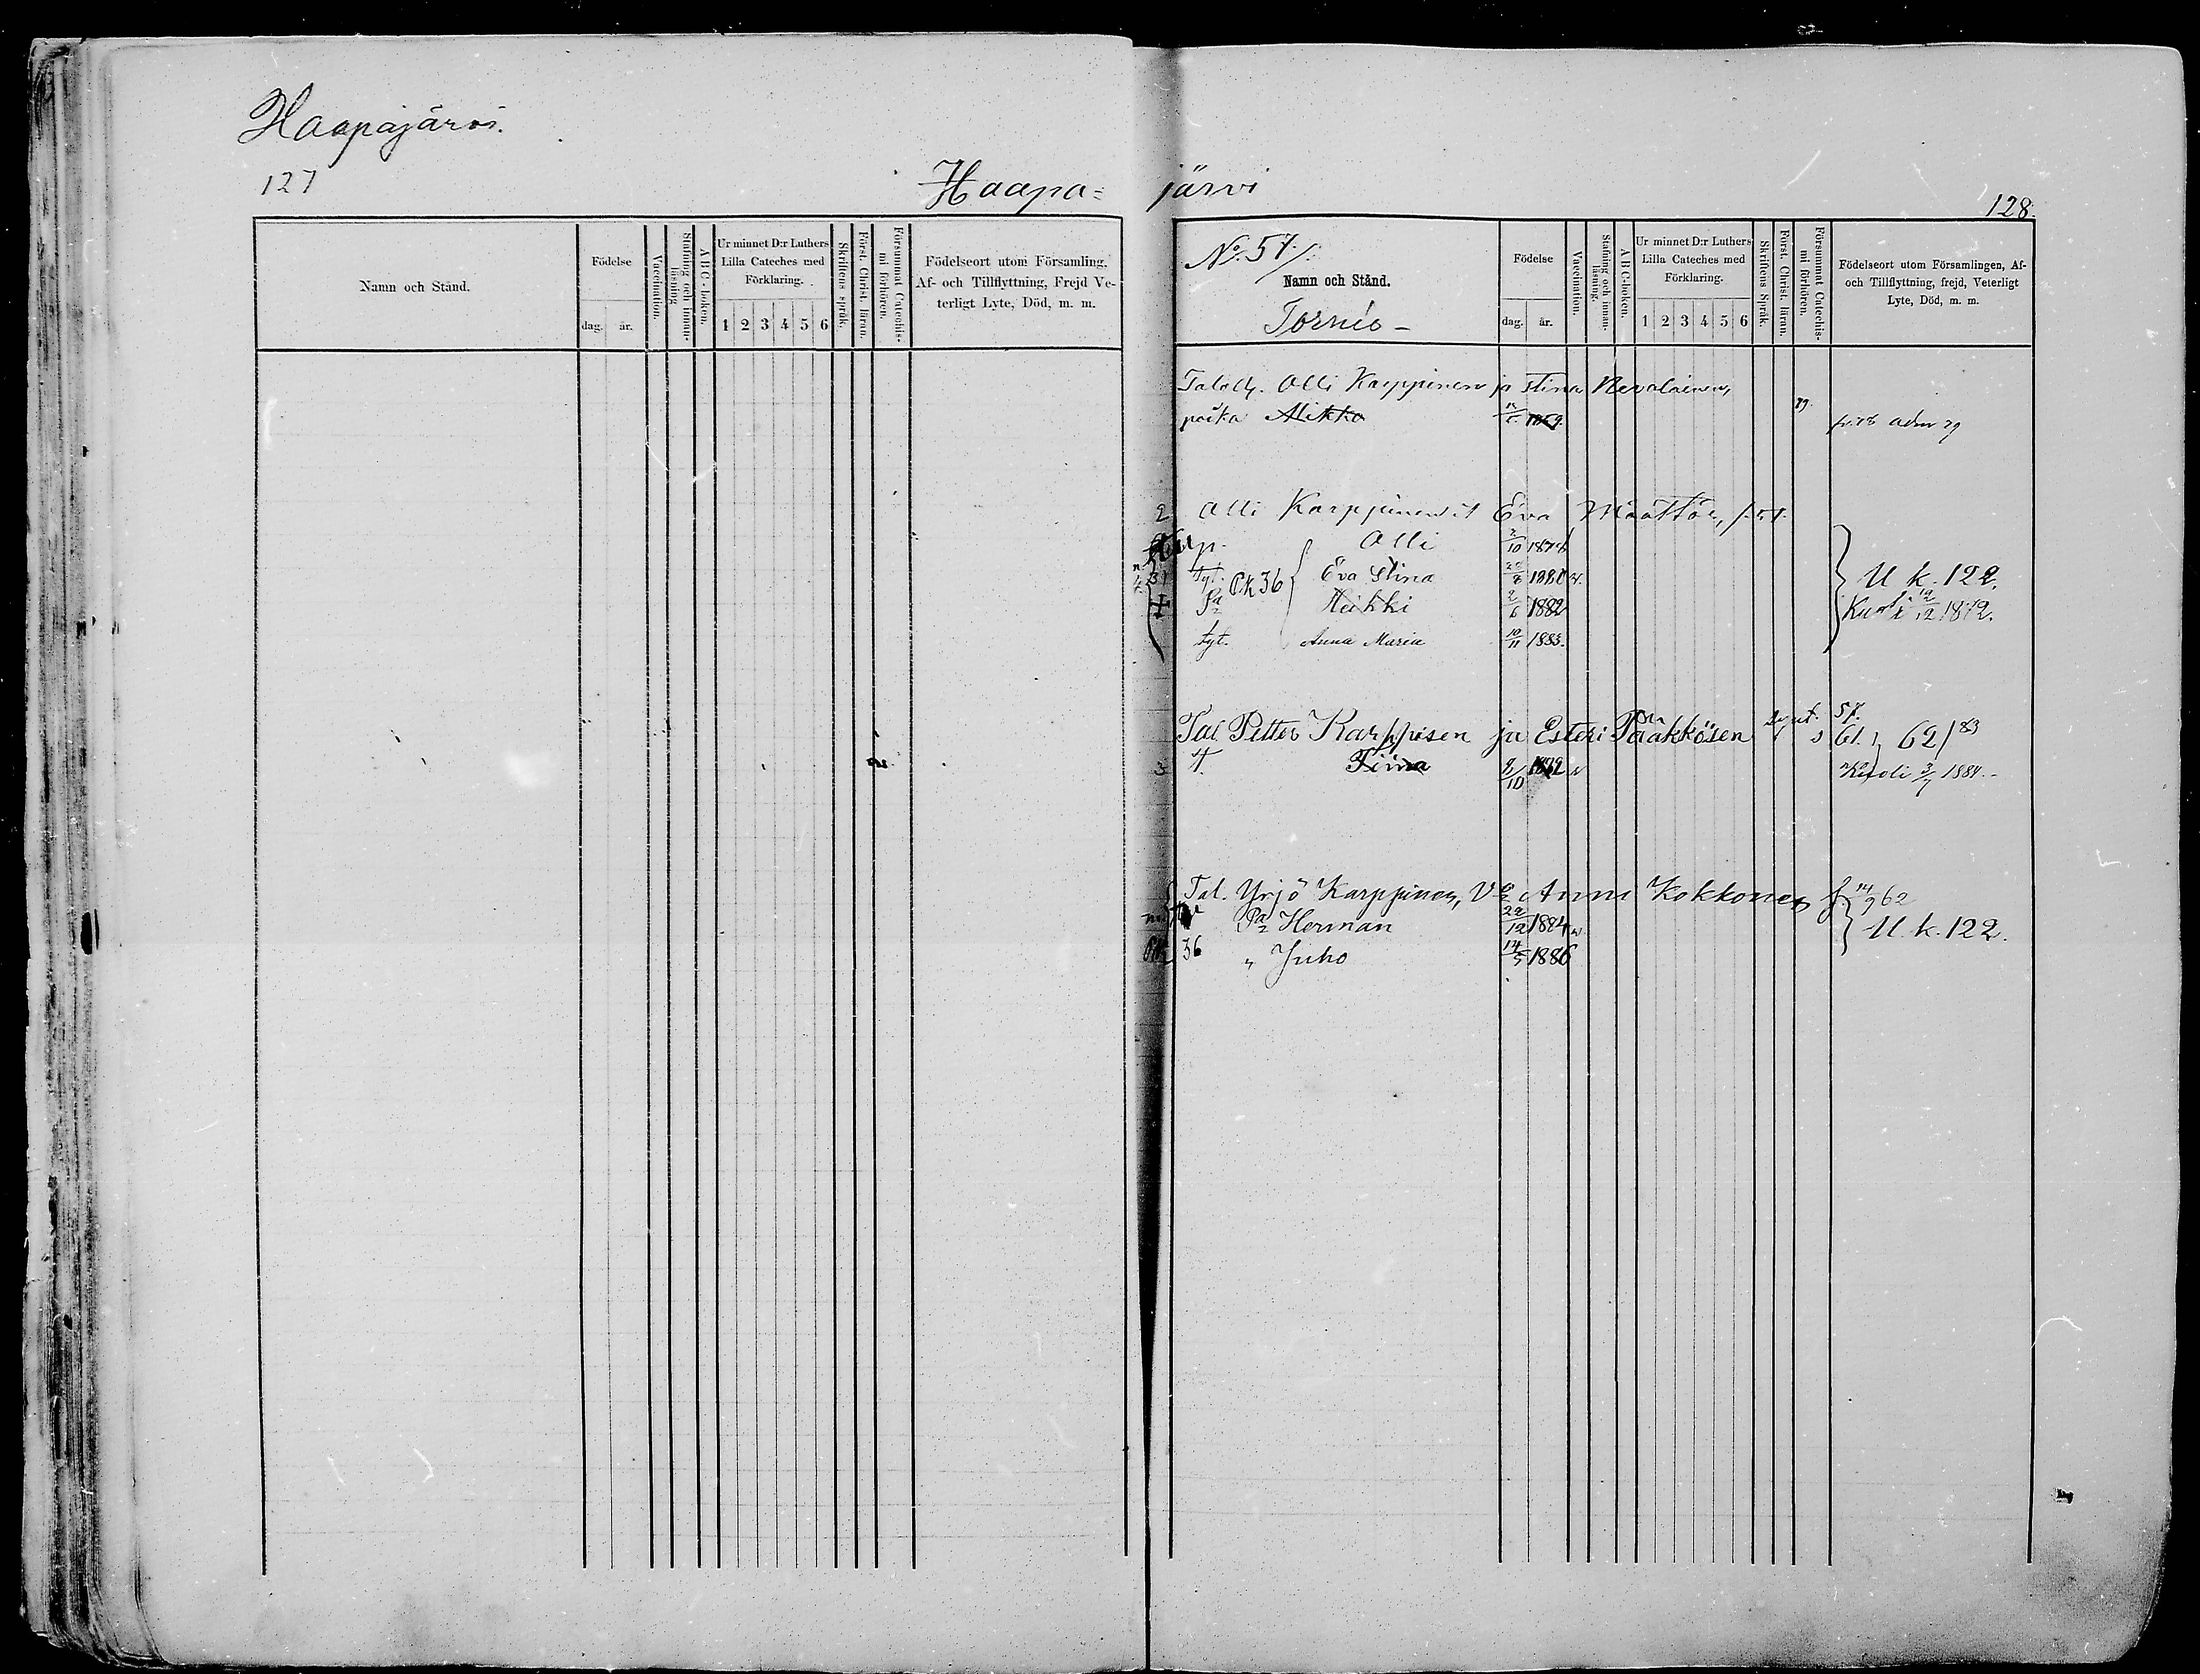 Haapajärvi.
127
Haapa=
järvi
128.
Namn och Stånd.
Födelse
dag. år.
Vaccination.
Stafning och innan-
läsning.
A B C-boken.
Ur minnet D:r Luthers
Lilla Cateches med
Förklaring.
1 2 3 4 5 6
Skriftens språk.
Först. Christ. läran.
Försummat Catechis-
mi förhören.
Födelseort utom Församling,
Af- och Tillflyttning, Frejd Ve-
terligt Lyte, Död, m. m.
No. 57/.
Namn och Stånd.
Tornio -
Födelse
dag. år.
Vaccination.
Stafning och innan-
läsning.
A B C-boken.
Ur minnet D:r Luthers
Lilla Cateches med
Förklaring.
1 2 3 4 5 6
Skriftens Språk.
Först. Christ. läran.
Försummat Catechis-
mi förhören.
Födelseort utom Församlingen, Af-
och Tillflyttning, frejd, Veterligt
Lyte, Död, m. m.
Olli Karppinen ja Stina Nevalainen,
poika Mikko 1869. adm 79
2 Olli Karppinen Eva Määttä
p. Olli 2/10 1878
Pk 36 Eva Stina 1880 v. U. k. 122.
Heikki 2/6 1882 Kuoli 1872.
tyt. Anna Maria 10/11 1883.
57.
Tal Petter Karppisen ja Esteri Pääkkösen 61. 62/83
3 T. Tiina 8/10 1872 v Kuoli 3/7 1884.-
Tal. Yrjö Karppinen, Vo Anna Kokkonen f. 14/9 62
Pa Herman 22/12 1884 v. U. k. 122.
36 " Juho 14/5 1886